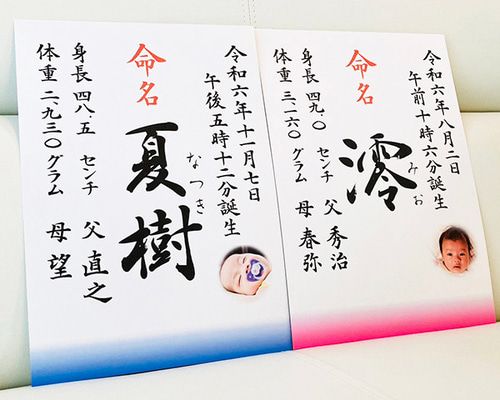 令和六年十一月七日
午後五時十二分誕生
なつき
夏樹
命名
身長 四八.五 センチ 父 直之
体重 二、九三〇グラム 母 望
令和六年八月二日
午前十時六分誕生
みお
澪
命名
身長 四九.〇 センチ 父 秀治
体重 三、一六〇グラム 母 春弥